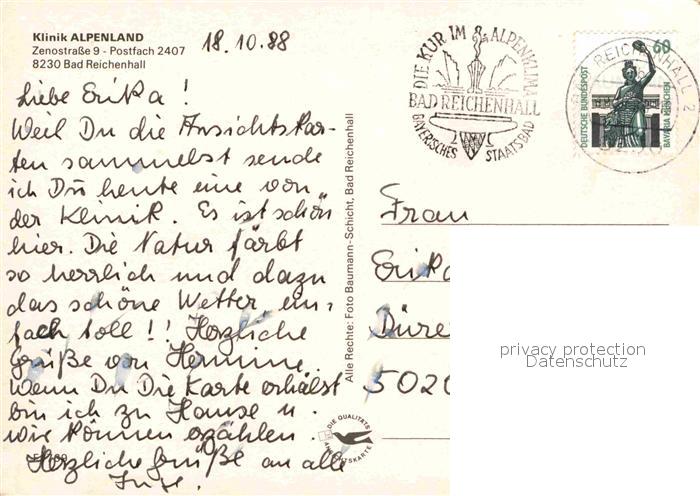 Klinik ALPENLAND
Zenostraße 9 - Postfach 2407
8230 Bad Reichenhall
18.10.88
Liebe Erika!
Weil Du die Ansichtskar-
ten sammelst sende
ich Du heute eine von
der Klinik. Es ist schön
hier. Die Natur färbt
so herrlich und dazu
das schöne Wetter, ein-
fach toll!! Herzliche
Grüße von Hermine.
Wenn Du Die Karte erhälst
bin ich zu Hause u.
wir können erzählen.
Herzliche Grüße an alle
Inge.
Alle Rechte: Foto Baumann-Schicht, Bad Reichenhall
DIE QUALITÄTS
ANSICHTSKARTE
DIE KUR IM ALPENKLIMA
BAD REICHENHALL
BAYERISCHES STAATSBAD
REICHENHALL 2
60
DEUTSCHE BUNDESPOST
BAVARIA MÜNCHEN
Frau
Erika
Düre
5020
privacy protection
Datenschutz